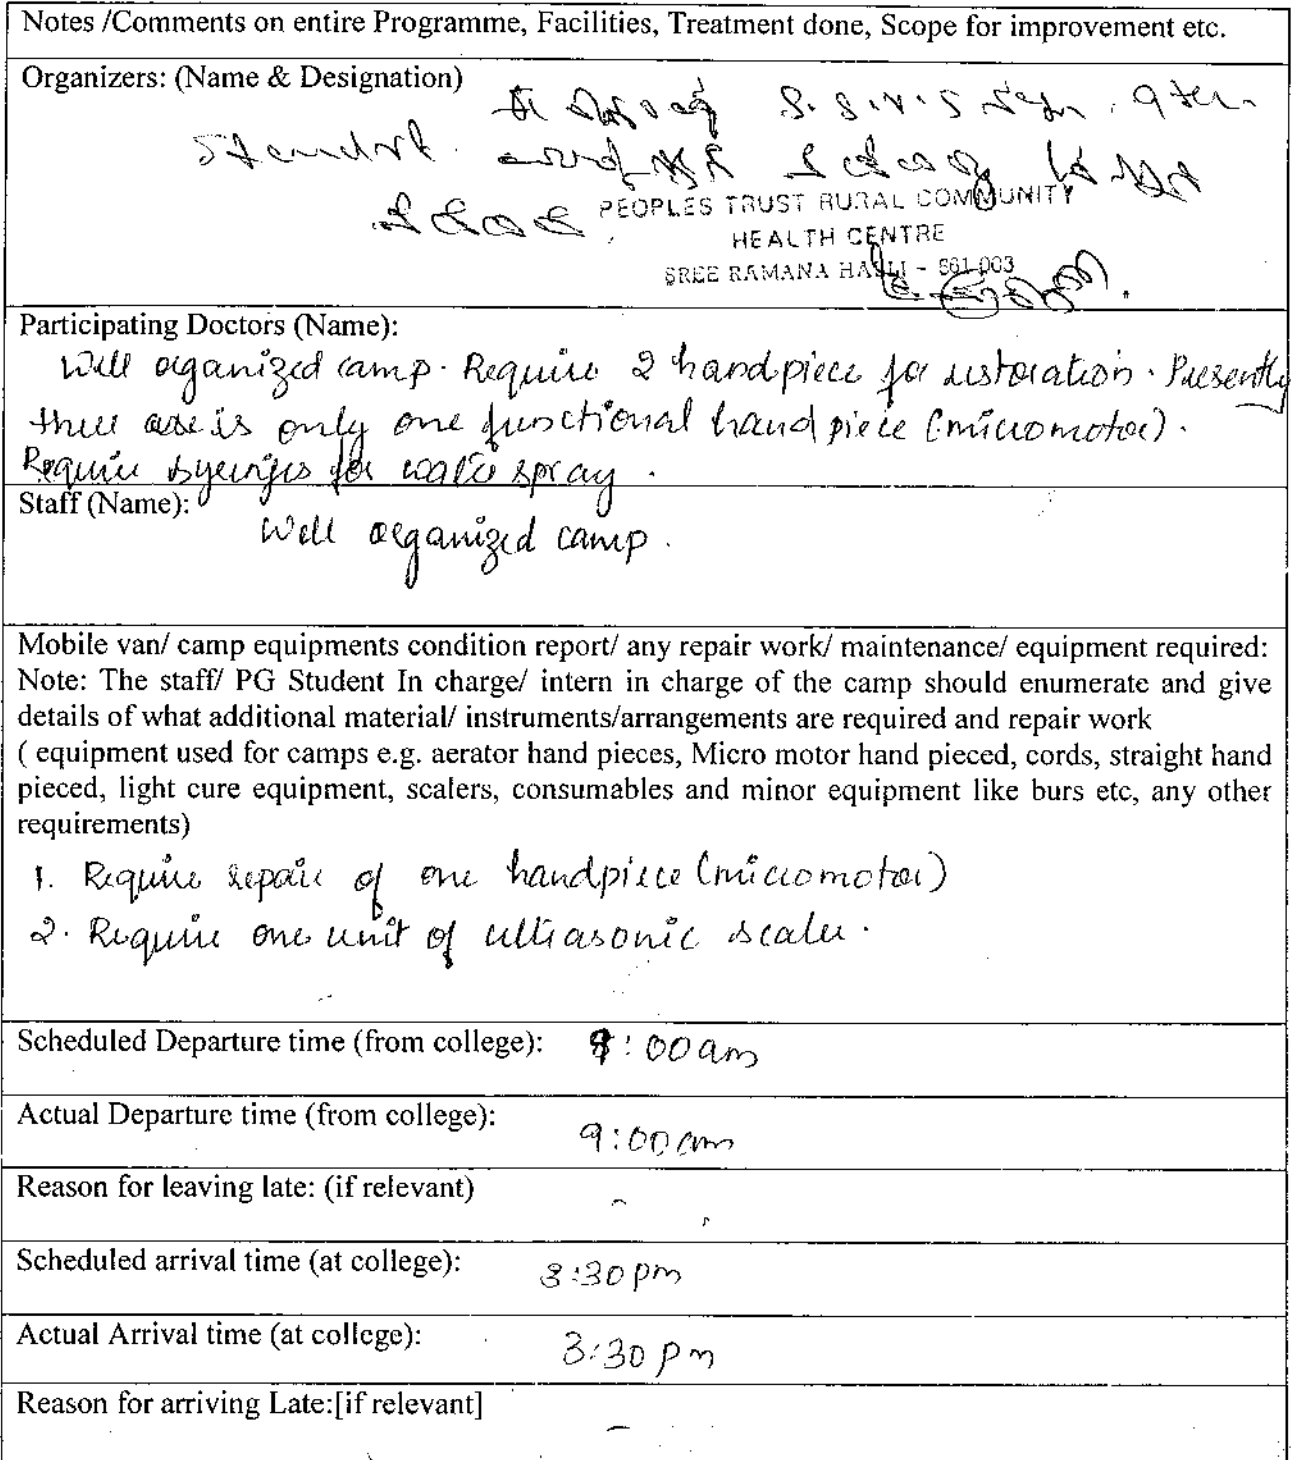 Notes /Comments on entire Programme, Facilities, Treatment done, Scope for improvement etc.
Organizers: (Name & Designation)
PEOPLES TRUST RURAL COMMUNITY
HEALTH CENTRE
SREE RAMANA HALLI - 561 003
Participating Doctors (Name):
Well organized camp. Require 2 handpiece for restoration. Presently
there is only one functional handpiece (micromotor).
Require syringes for water spray.
Staff (Name):
Well organized camp.
Mobile van/ camp equipments condition report/ any repair work/ maintenance/ equipment required:
Note: The staff/ PG Student In charge/ intern in charge of the camp should enumerate and give
details of what additional material/ instruments/arrangements are required and repair work
( equipment used for camps e.g. aerator hand pieces, Micro motor hand pieced, cords, straight hand
pieced, light cure equipment, scalers, consumables and minor equipment like burs etc, any other
requirements)
1. Require repair of one handpiece (micromotor)
2. Require one unit of ultrasonic scaler.
Scheduled Departure time (from college): :00 am
Actual Departure time (from college): 9:00 am
Reason for leaving late: (if relevant) -
Scheduled arrival time (at college): 3:30 pm
Actual Arrival time (at college): 3:30 pm
Reason for arriving Late:[if relevant] -